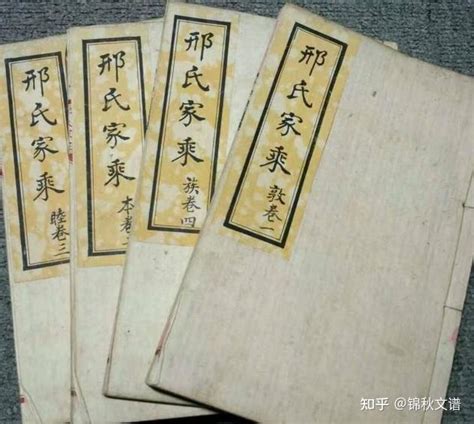 邢氏家乘
敦卷一
邢氏家乘
族卷四
邢氏家乘
本卷
邢氏家乘
睦卷三
知乎 @锦秋文谱